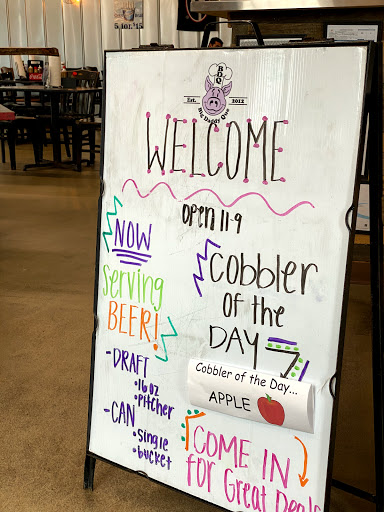 BDQ
Est. 2012
Big Daddy Que
WELCOME
OPEN 11-9
NOW
Serving
BEER!
-DRAFT
•16oz
•Pitcher
-CAN
•single
•bucket
Cobbler
OF the
DAY
Cobbler of the Day...
APPLE
COME IN
for Great Deals